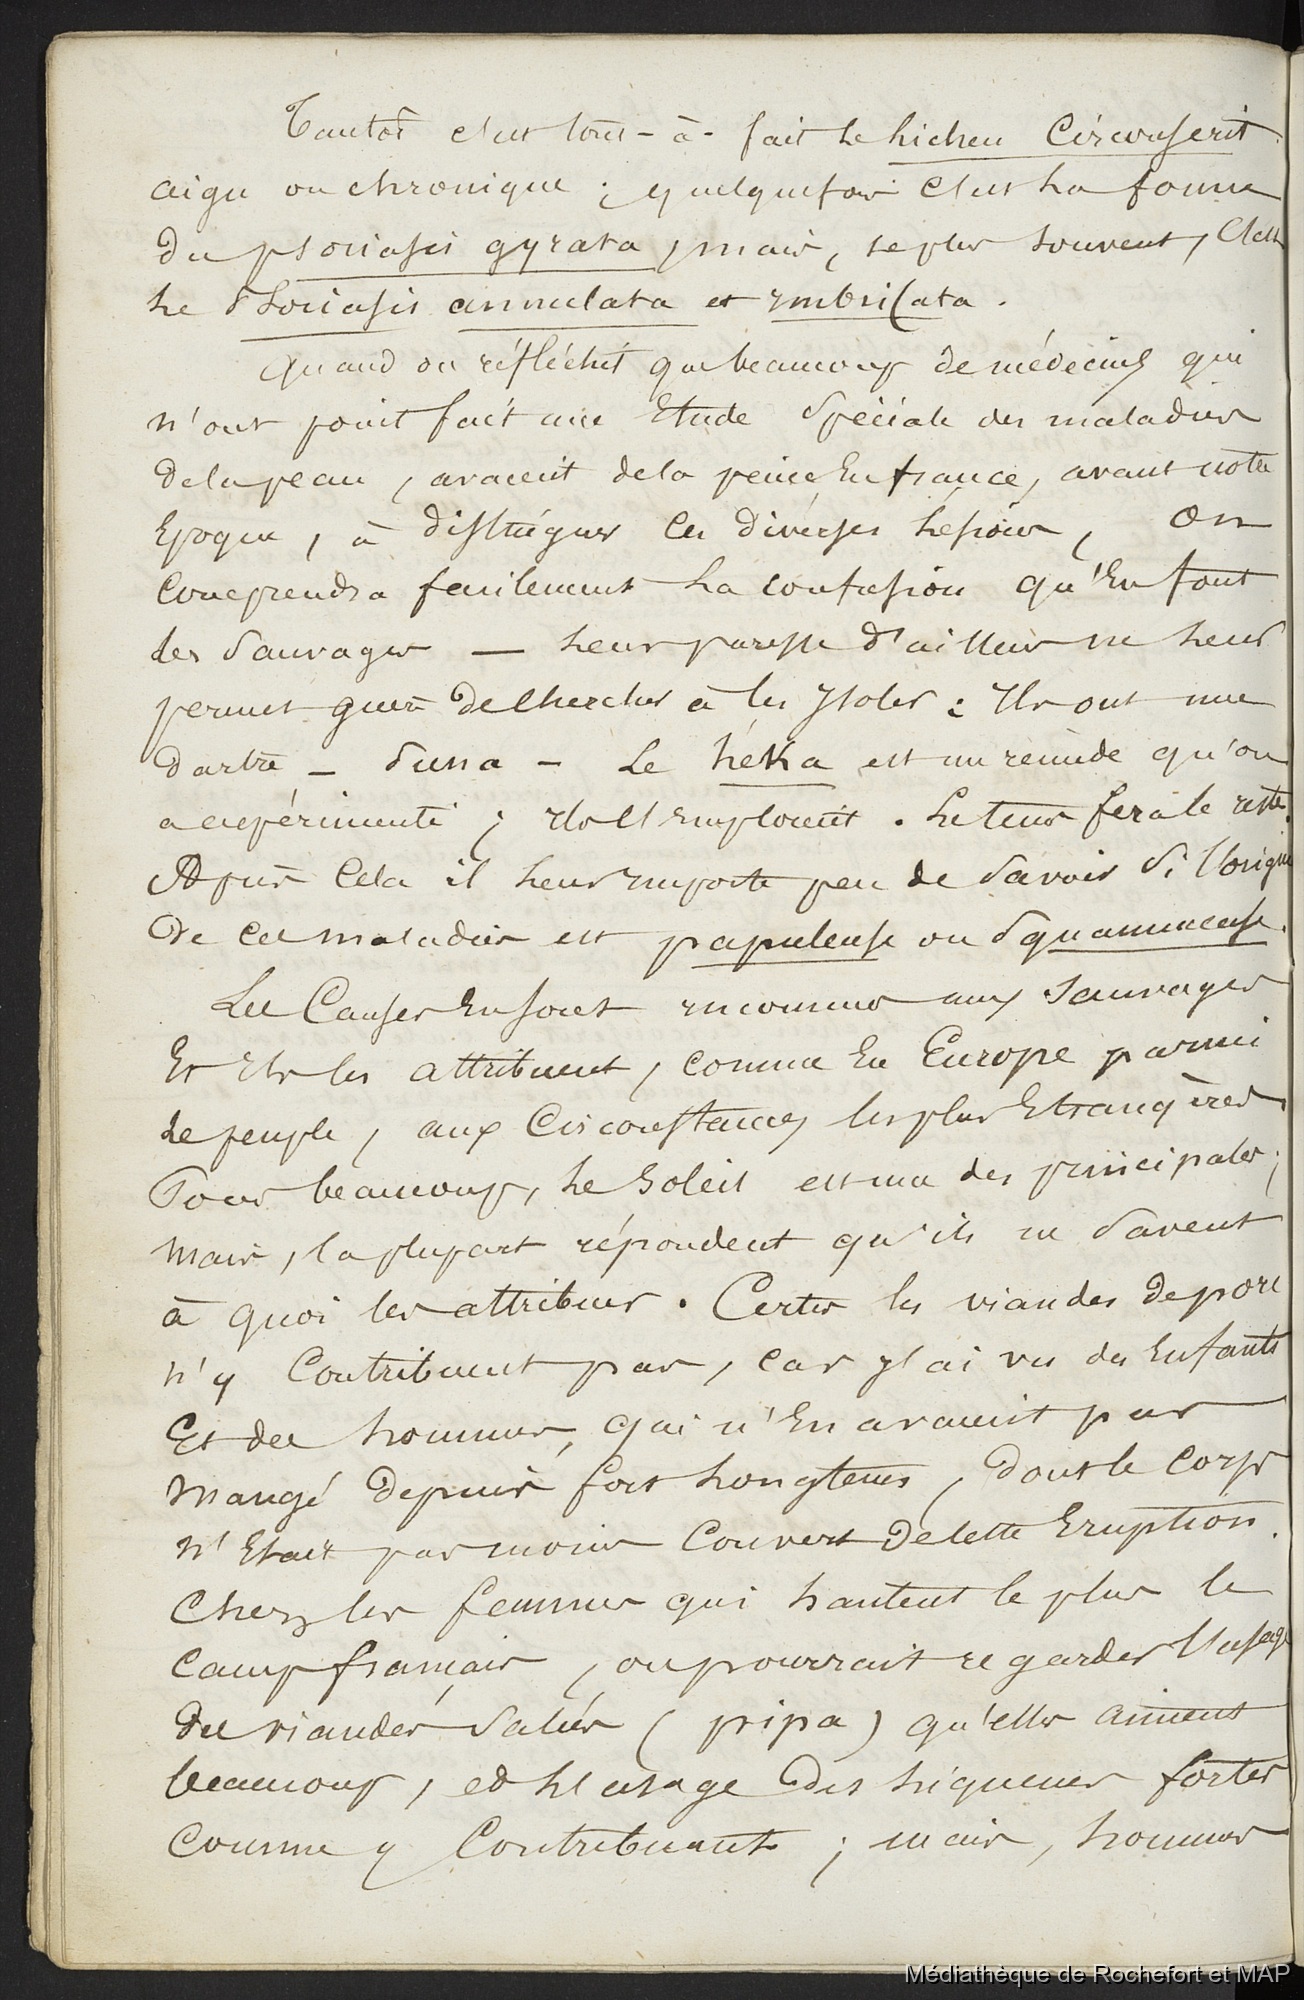 Tantôt c'est tout-à-fait le lichen circonscrit
aigu ou chronique ; quelquefois c'est la forme
du psoriasis gyrata, mais, le plus souvent, c'est
le Psoriasis annulata et imbricata.
Quand on réfléchit que beaucoup de médecins qui
n'ont point fait une Etude Spéciale des maladies
de la peau, avaient de la peine En france, avant notre
Epoque, à distinguer ces diverses lésions, on
comprendra facilement la confusion qu'En font
les Sauvages — leur paresse d'ailleurs ne leur
permet guère de chercher à les Isoler : Ils ont une
dartre — — Le héka est un remède qu'on
a expérimenté ; Ils l'Emploient. Le tems fera le reste.
Après cela il leur Importe peu de Savoir Si l'origine
De ces maladies est papuleuse ou Squammeuse.
Les Causes En sont inconnues aux Sauvages
Et Ils les attribuent, comme En Europe parmi
le peuple, aux Circonstances les plus Etrangères.
Pour beaucoup, le Soleil est une des principales ;
mais, la plupart répondent qu'ils ne Savent
à quoi les attribuer. Certes les viandes de porc
n'y Contribuent pas, car j'ai vu des Enfants
Et des hommes, qui n'En avaient pas
mangé depuis fort longtems, dont le corps
n'Etait pas moins Couvert de cette Eruption.
Chez les femmes qui hantent le plus le
camp français, on pourrait regarder l'usage
des viandes Salées (pipa) qu'elles aiment
beaucoup, et l'usage des liqueurs fortes
comme y Contribuant ; mais, hommes
Médiathèque de Rochefort et MAP